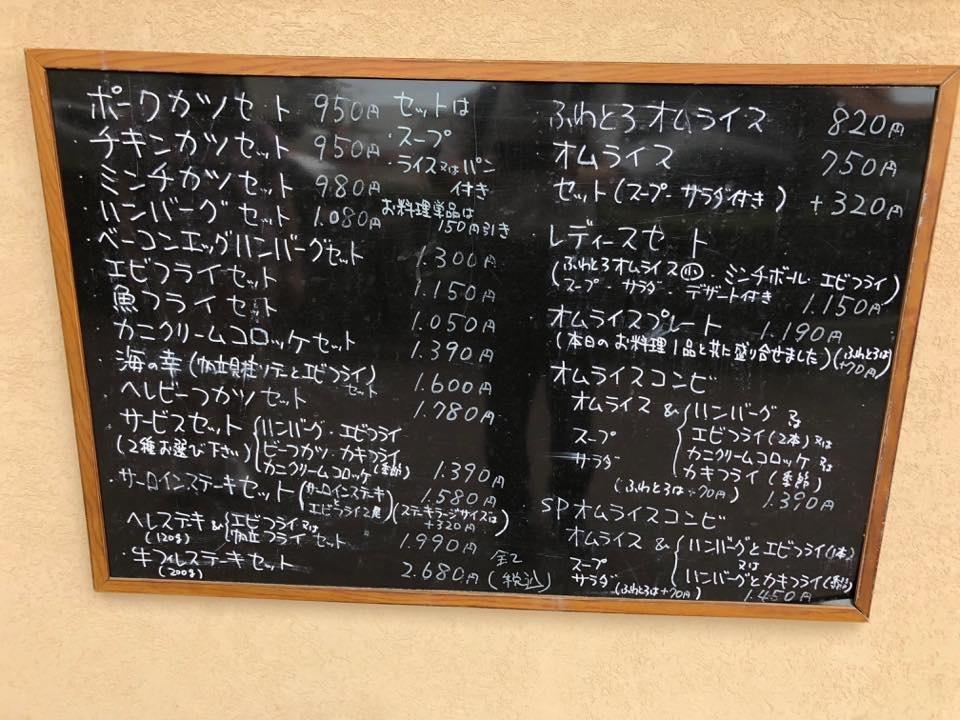 ポークカツセット 950円
チキンカツセット 950円
・ミンチカツセット 980円
・ハンバーグセット 1.080円
・ベーコンエッグハンバーグセット 1.300円
・エビフライセット 1.150円
魚フライセット 1.050円
・カニクリームコロッケセット 1.390円
・海の幸(帆立貝柱ソテーとエビフライ)セット 1.600円
ヘレビーフカツセット 1.780円
サービスセット
(2種お選び下さい)
ハンバーグ・エビフライ
ビーフカツ・カキフライ
カニクリームコロッケ(季節) 1.390円
・サーロインステーキセット 1.580円
(サーロインステーキとエビフライ2尾)
(ステーキラージサイズは+320円)
ヘレステーキ&
(120g)
エビフライ又は
帆立フライ セット 1.990円
・牛フィレステーキセット 2.680円
(200g)
全て(税込)
セットは
・スープ
・ライス又はパン
付き
お料理単品は
150円引き
ふわとろオムライス 820円
オムライス 750円
セット(スープ・サラダ付き) +320円
レディースセート
(ふわとろオムライス小・ミンチボール・エビフライ)
(スープ・サラダ・デザート付き 1.150円
オムライスプレート 1.190円
(本日のお料理1品と共に盛り合せました)(ふわとろは+70円)
オムライスコンビ
オムライス &
スープ
サラダ
ハンバーグ 又は
エビフライ(2本)又は
カニクリームコロッケ 又は
カキフライ(季節)
(ふわとろは+70円) 1.390円
SPオムライスコンビ
オムライス &
スープ
サラダ
ハンバーグとエビフライ(1本)
又は
ハンバーグとカキフライ(季節)
(ふわとろは+70円) 1.450円